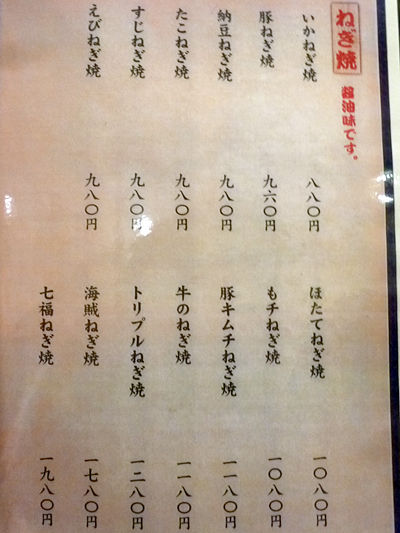 ねぎ焼
醤油味です。
いかねぎ焼 八八〇円
豚ねぎ焼 九六〇円
納豆ねぎ焼 九八〇円
たこねぎ焼 九八〇円
すじねぎ焼 九八〇円
えびねぎ焼 九八〇円
ほたてねぎ焼 一〇八〇円
もチねぎ焼 一〇八〇円
豚キムチねぎ焼 一一八〇円
牛のねぎ焼 一一八〇円
トリプルねぎ焼 一二八〇円
海賊ねぎ焼 一七八〇円
七福ねぎ焼 一九八〇円